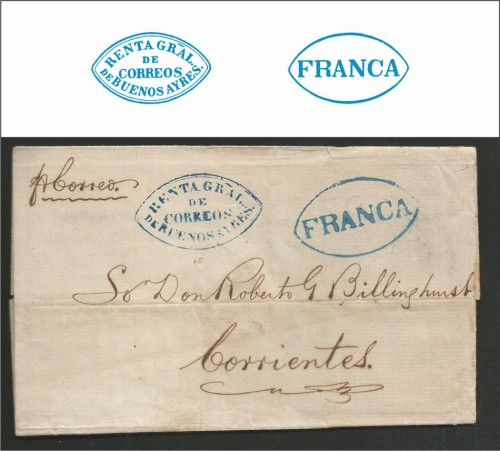 RENTA GRAL.
DE
CORREOS
DE BUENOS AYRES.
FRANCA
pr Correo.
RENTA GRAL.
DE
CORREOS
DE BUENOS AYRES.
FRANCA
Sor Don Roberto G Billinghurst
Corrientes.